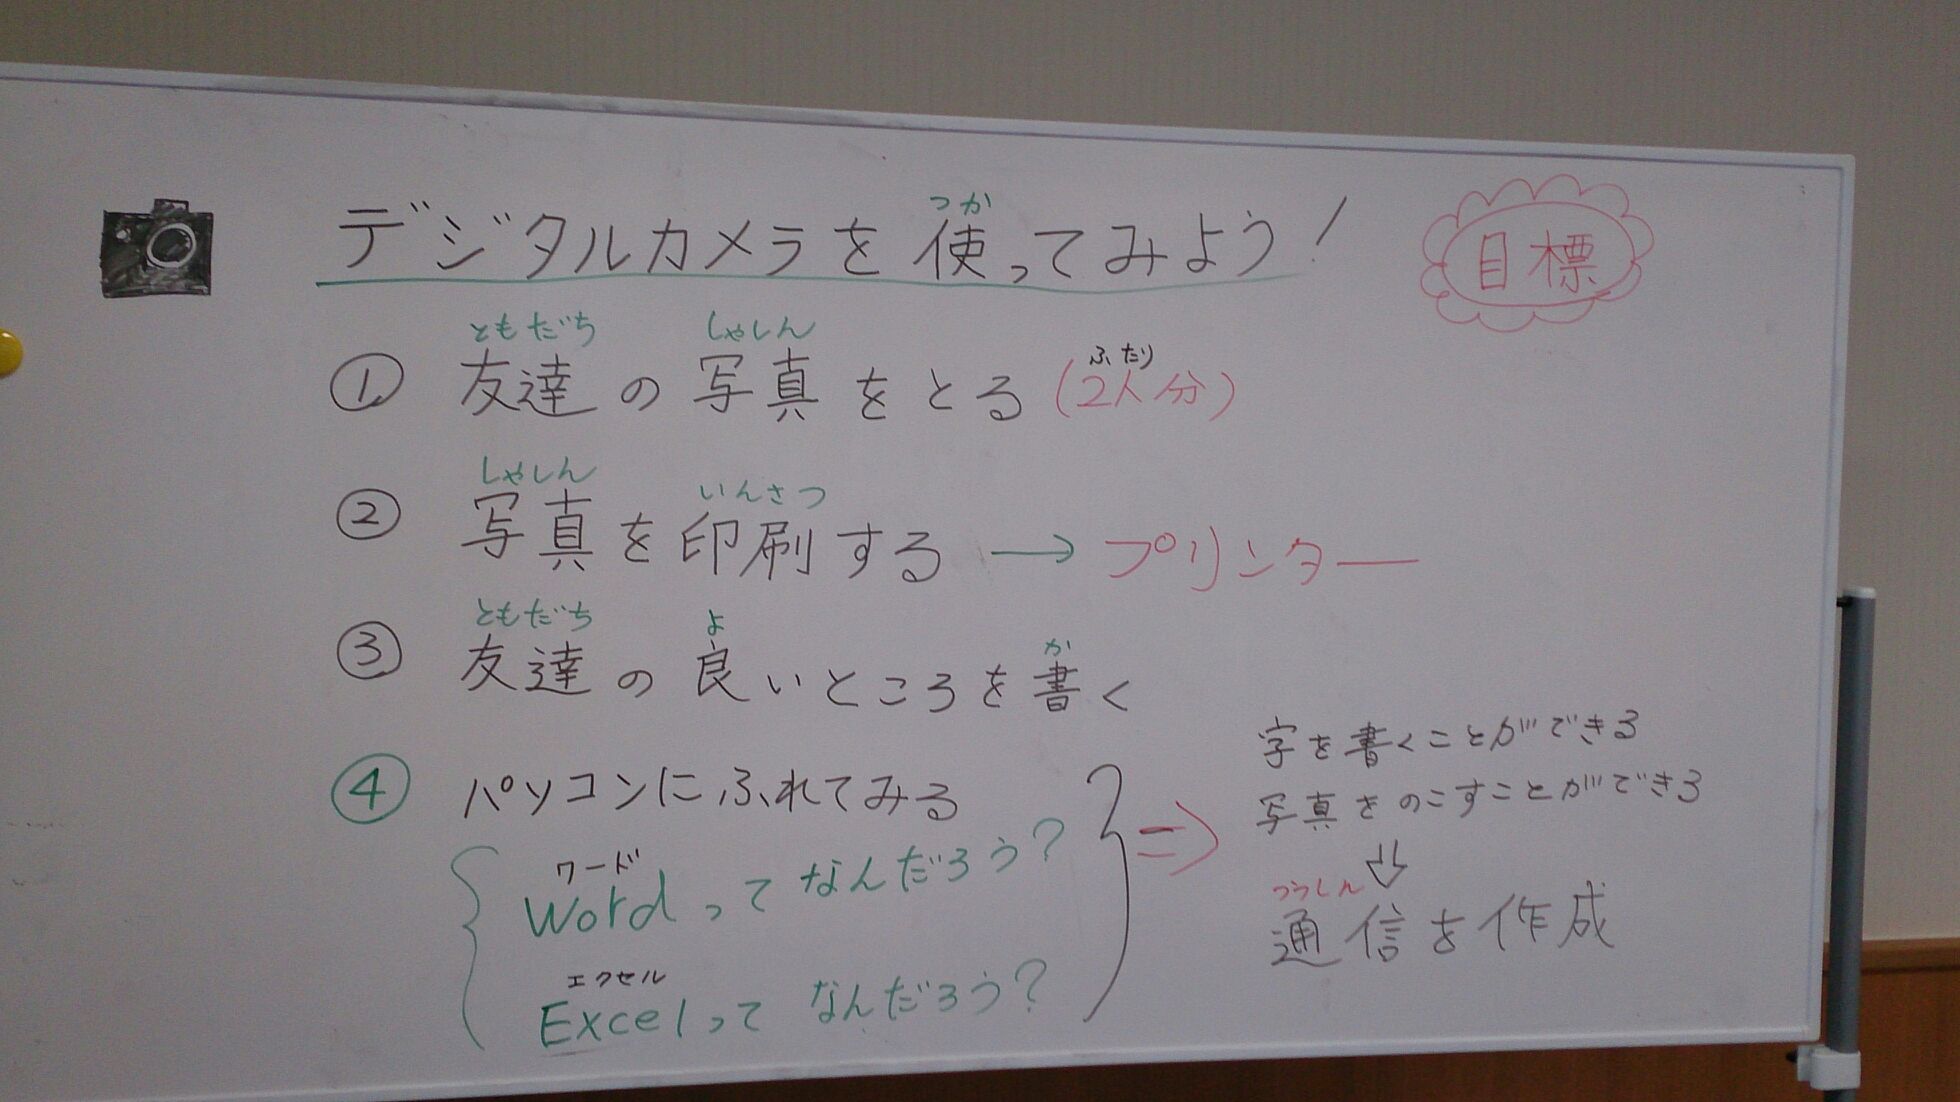 つか
デジタルカメラを使ってみよう!
目標
ともだち しゃしん ふたり
① 友達の写真をとる (2人分)
しゃしん いんさつ
② 写真を印刷する → プリンター
ともだち よ か
③ 友達の良いところを書く
④ パソコンにふれてみる
ワード
Wordってなんだろう?
エクセル
Excelってなんだろう?
⇒
字を書くことができる
写真をのこすことができる
⇓
つうしん
通信を作成